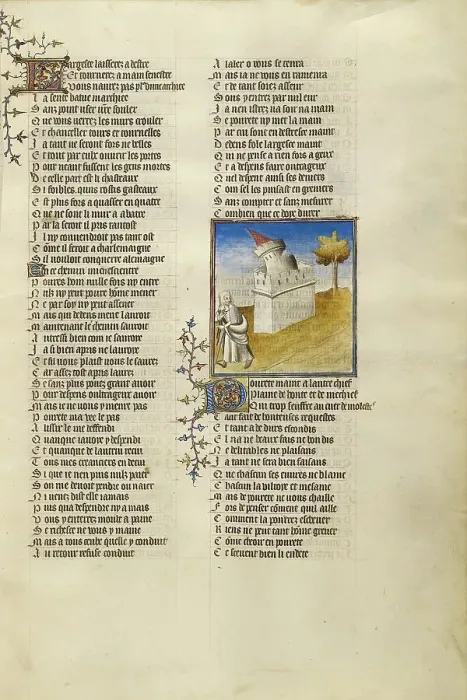 Largesse laisserez a destre
Et tournerez a main senestre
Vous naurez pas pl9 dune archiee
La sente batue marchiee
Sanz point user
Que vous verrez les murs crouler
Et chanceler tours et tournelles
Ja tant ne seront fors ne belles
Et tout par eulz ouurir les portes
Pour neant fussent les gens mortes
De celle part est li chasteaux
Si foibles quns rostis gasteaux
Est plus fors a quasser en quatre
Que ne sont li mur a abatre
Par la seroit il pris tantost
Il ny conuendroit pas tant ost
Come il feroit a charlemaigne
Sil vouloit conquerre alemaigne
En ce chemin
Poures hom nulle fois ny entre
Nuls ny peut poure home mener
Ne par soy ny peut assener
Mais qui dedens mene lauroit
Maintenant le chemin sauroit
Autressi bien com ie sauroie
Ja si bien apris ne lauroye
Et sil vous plaist vous le saurez
Car assez tost apris laurez
Se sanz plus pouez grant auoir
Pour despens oultrageux auoir
Mais ie ne vous y menrai pas
Pourete ma vee le pas
A lissir le me deffendi
Quanque iauoye y despendi
Et quanque de lautrui receu
Tous mes creanciers en deceu
Si que ie nen puis nulz paier
Son me deuoit pendre ou naier
Ni venez dist elle iamais
Puis qua despendre ny a mais
Vous y enterrez moult a paine
Se richesse ne vous y maine
Mais a tous ceulx quelle y conduit
Au retour refuse conduit
A laler o vous se tenra
Mais ia ne vous en ramenra
Et de tant soiez asseur
Sous y entrez par nul eur
Ja nen istrez ne soir ne main
Se pourete ny met la main
Par cui sont en destresse maint
Dedens fole largesse maint
Qui ne pense a rien fors a geux
Et a despens faire oultrageux
Quel despent ainsi ses deniers
Com sel les puisast en greniers
Sans compter et sanz mesurer
Combien que ce doie durer
Pourete maint a lautre chief
Plaine de honte et de meschief
Qui trop seuffre au cuer de moleste
Tant fait de honteuses requestes
Et tant a de durs escondis
El na ne beaux fais ne bons dis
Ne delitables ne plaisans
Ja tant ne sera bien faisans
Que chascun ses euures ne blame
Chascun la viltoye et mesame
Mais de pourete ne vous chaille
Fors de penser coment quil aille
Comment la pourrez escheuer
Riens ne peut tant home greuer
Come cheoir en pourete
Ce sceuent bien li endete